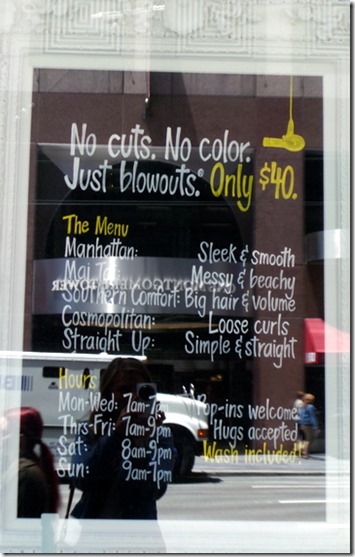 No cuts. No color.
Just blowouts.® Only $40.
The Menu
Manhattan: Sleek & smooth
Mai Tai: Messy & beachy
Southern Comfort: Big hair & volume
Cosmopolitan: Loose curls
Straight Up: Simple & straight
Hours
Mon-Wed: 7am-7 Pop-ins welcome
Thrs-Fri: 7am-9pm Hugs accepted
Sat: 8am-7pm Wash included!
Sun: 9am-7pm